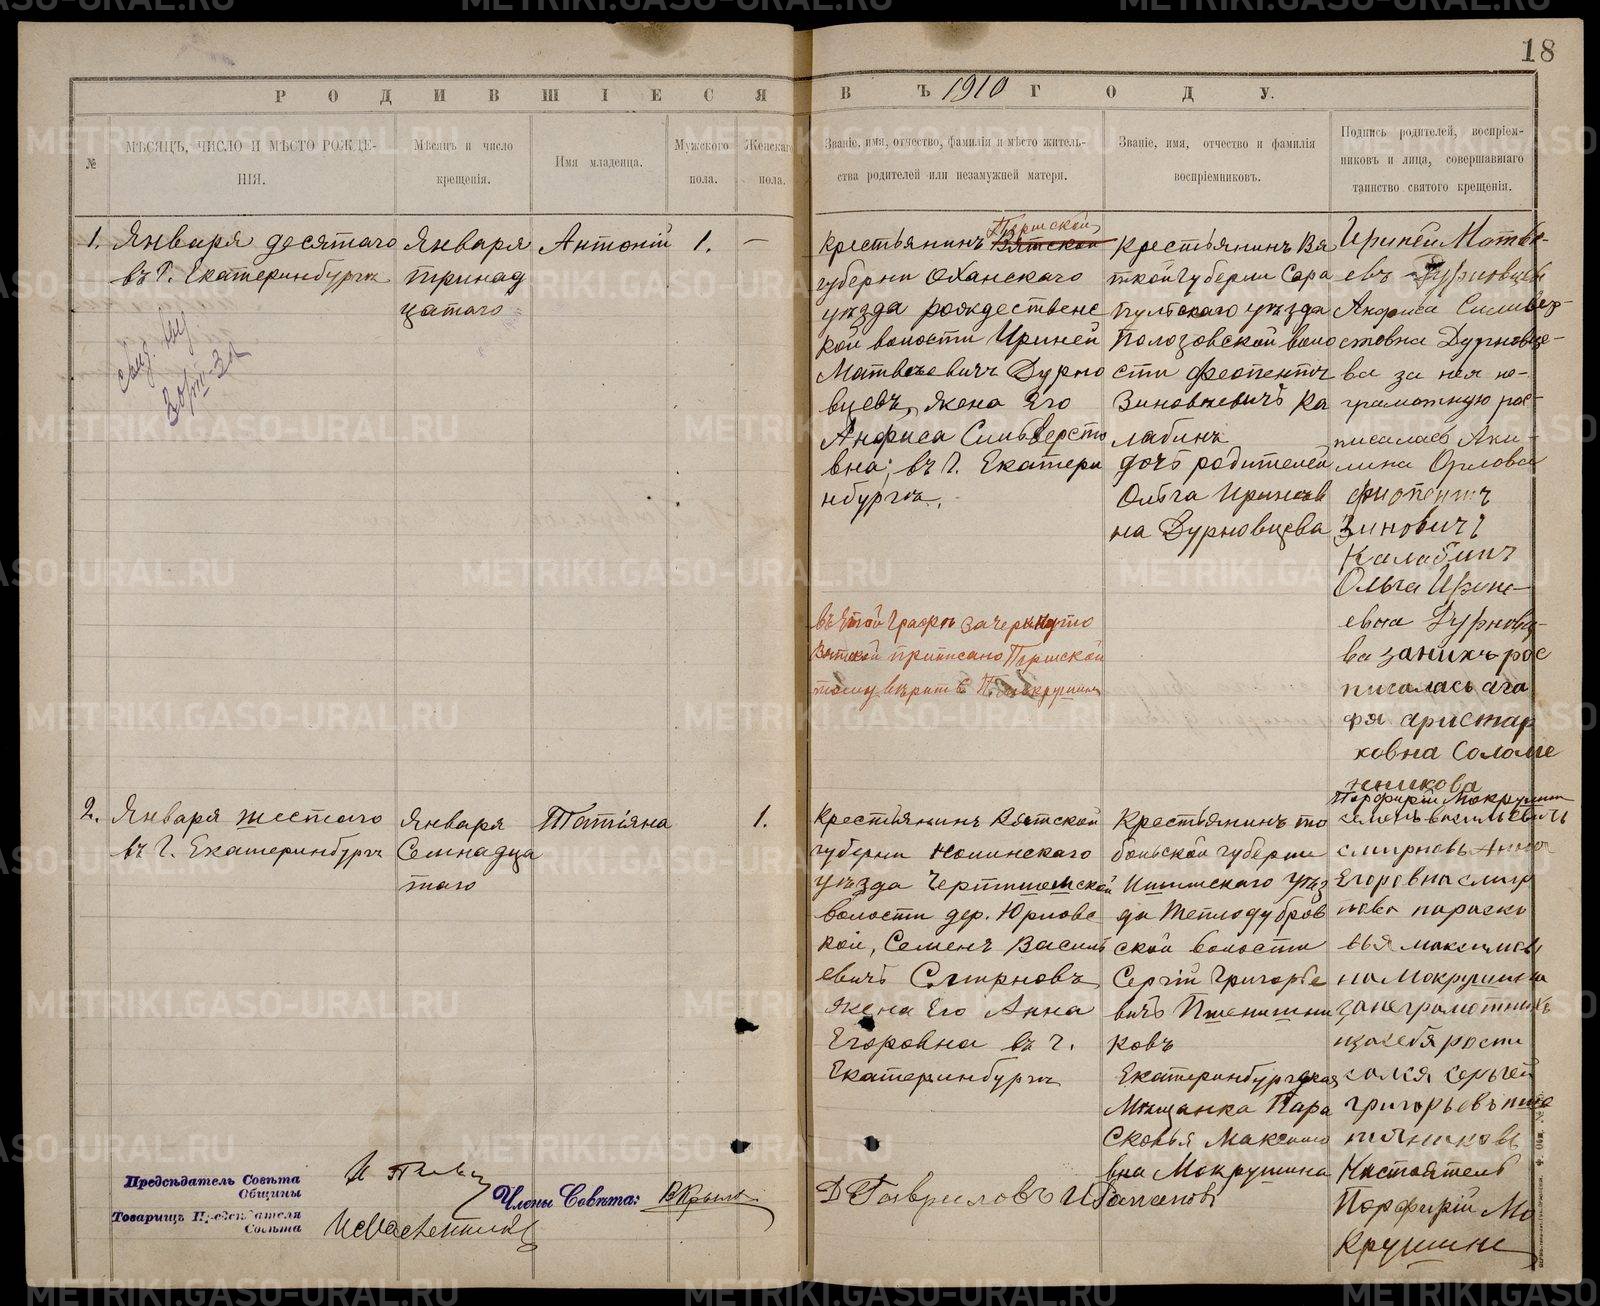 18
РОДИВШІЕСЯ ВЪ 1910 ГОДУ.
№
МѢСЯЦЪ, ЧИСЛО И МѢСТО РОЖДЕ-
НІЯ.
Мѣсяцъ и число
крещенія.
Имя младенца.
Мужского
пола.
Женскаго
пола.
Званіе, имя, отчество, фамилія и мѣсто житель-
ства родителей или незамужней матери.
Званіе, имя, отчество и фамилія
воспріемниковъ.
Подпись родителей, воспріем-
никовъ и лица, совершавшаго
таинство святого крещенія.
1.
Января десятаго
въ Г. Екатеринбургѣ
Января
тринад
цатаго
Антоній
1.
—
Пермской
Крестьянинъ Вятской
губерни Оханскаго
уѣзда рождественс
кой волости Ириней
Матвѣевичъ Дурно
вцевъ, жена Его
Анфиса Сильверсто
вна; въ Г. Екатери
нбургѣ.
въ этой графѣ зачеркнуто
Вятской приписано Пермской
тому вѣрить П. Мокрушинъ
Крестьянинъ Вя
ткой губерни Сара
пульскаго уѣзда
Полозовской воло
сти Феопентъ
Зиновьевичъ Ка
лабинъ
дочь родителей
Ольга Иринеев
на Дурновцева
Ириней Матвѣ-
евъ Дурновцев
Анфиса Сильвер-
стовна Дурновце-
ва за нея не-
грамотную рос-
писалась Аку-
лина Орлова
Зиновичъ
Калабинъ
Ольга Ирине-
евна Дурновц-
ва заникъ рос
писалась ага
фя аристар
ховна Соломе
нникова
Порфирій Мокрушин
2.
Января шестаго
въ Г. Екатеринбургѣ
Января
Семнадца
таго
Татіяна
1.
Крестьянинъ Вятской
губерни Нолинскаго
уѣзда
волости дер. Юрловс
кой, Семенъ Василь
евичъ Смирновъ
жена Его Анна
Егоровна въ г.
Екатеринбургѣ
Крестьянинъ то
больской губерни
Ишимскаго Уѣз
да Теплодубров
ской волости
Сергій Григорье
вичъ Пшенични
ковъ
Екатеринбургская
Мѣщанка Пара
сковья Максимо
вна Мокрушина
семенъ васильевичь
смирновъ Анна
Егоровна смир
нова параско
вья максимов
на Мокрушина
за неграмотныхъ
изасебя роспи
сался сергей
григорьевъ пше
ничниковъ
Настоятель
Порфирій Мо
крушинъ
Предсѣдатель Совѣта
Общины
Товарищъ Предсѣдателя
Совѣта
Члены Совѣта:
Д Гавриловъ
METRIKI.GASO-URAL.RU